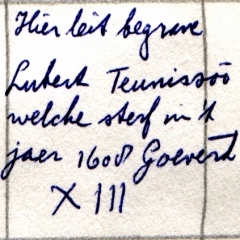 Hier leit begrave
Lubert Teunissōō
welche sterf in 't
jaer 1608 Goevert
X III